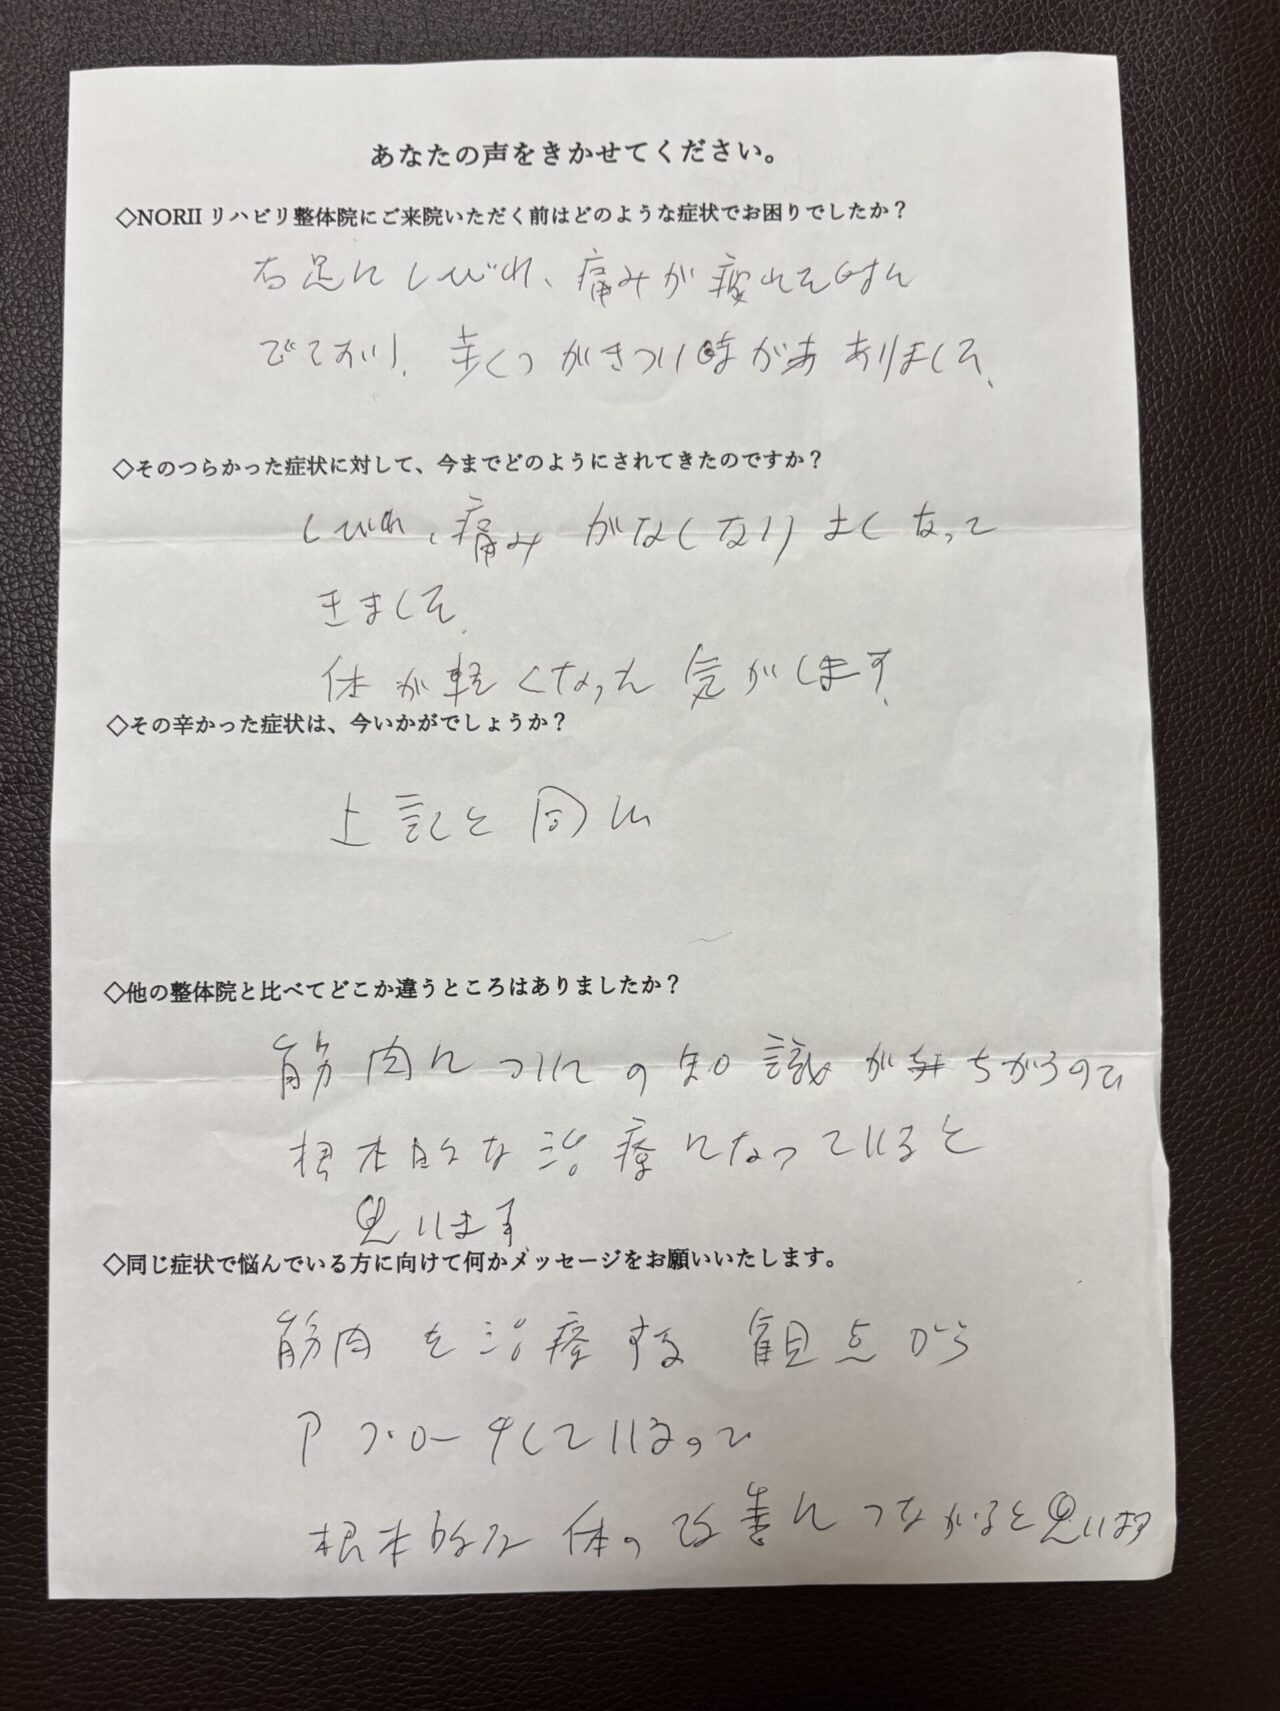 あなたの声をきかせてください。
◇NORII リハビリ整体院にご来院いただく前はどのような症状でお困りでしたか？
右足に しびれ、痛みが 疲れ
でており、歩くのがきつい時があ ありました、
◇そのつらかった症状に対して、今までどのようにされてきたのですか？
しびれ、痛み がなくなり よくなって
きました。
体が軽くなった気がします。
◇その辛かった症状は、今いかがでしょうか？
上記と同じ
◇他の整体院と比べてどこか違うところはありましたか？
筋肉についての知識が ちがうので
根本的な治療になっていると
思います
◇同じ症状で悩んでいる方に向けて何かメッセージをお願いいたします。
筋肉を治療する 観点から
アプローチしているので
根本的な 体の改善につながると思います